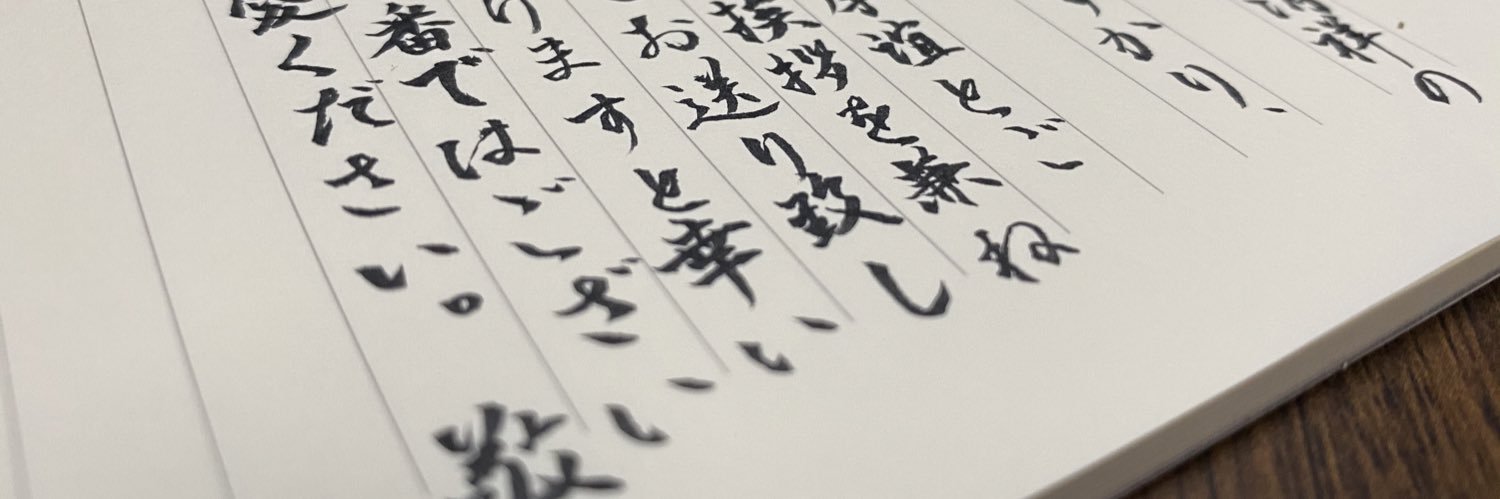 祥の
かり、
誼とご
挨拶を兼ね
お送り致し
りますと幸い
番ではござい
ください。敬